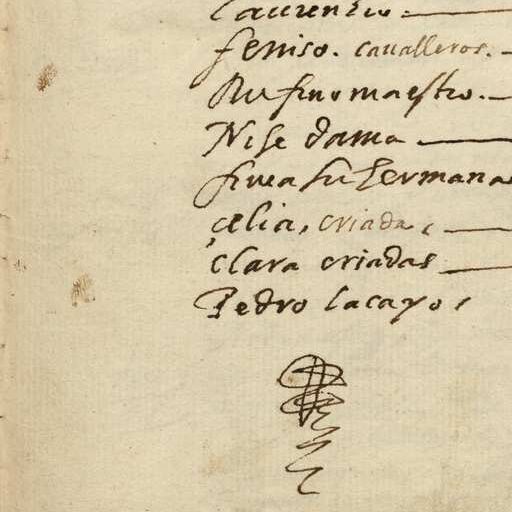 laurenzio.
feniso. caualleros.
Rufino maestro.
Nise dama
finea su hermana
çelia, criada,
clara criadas
Pedro lacayo,